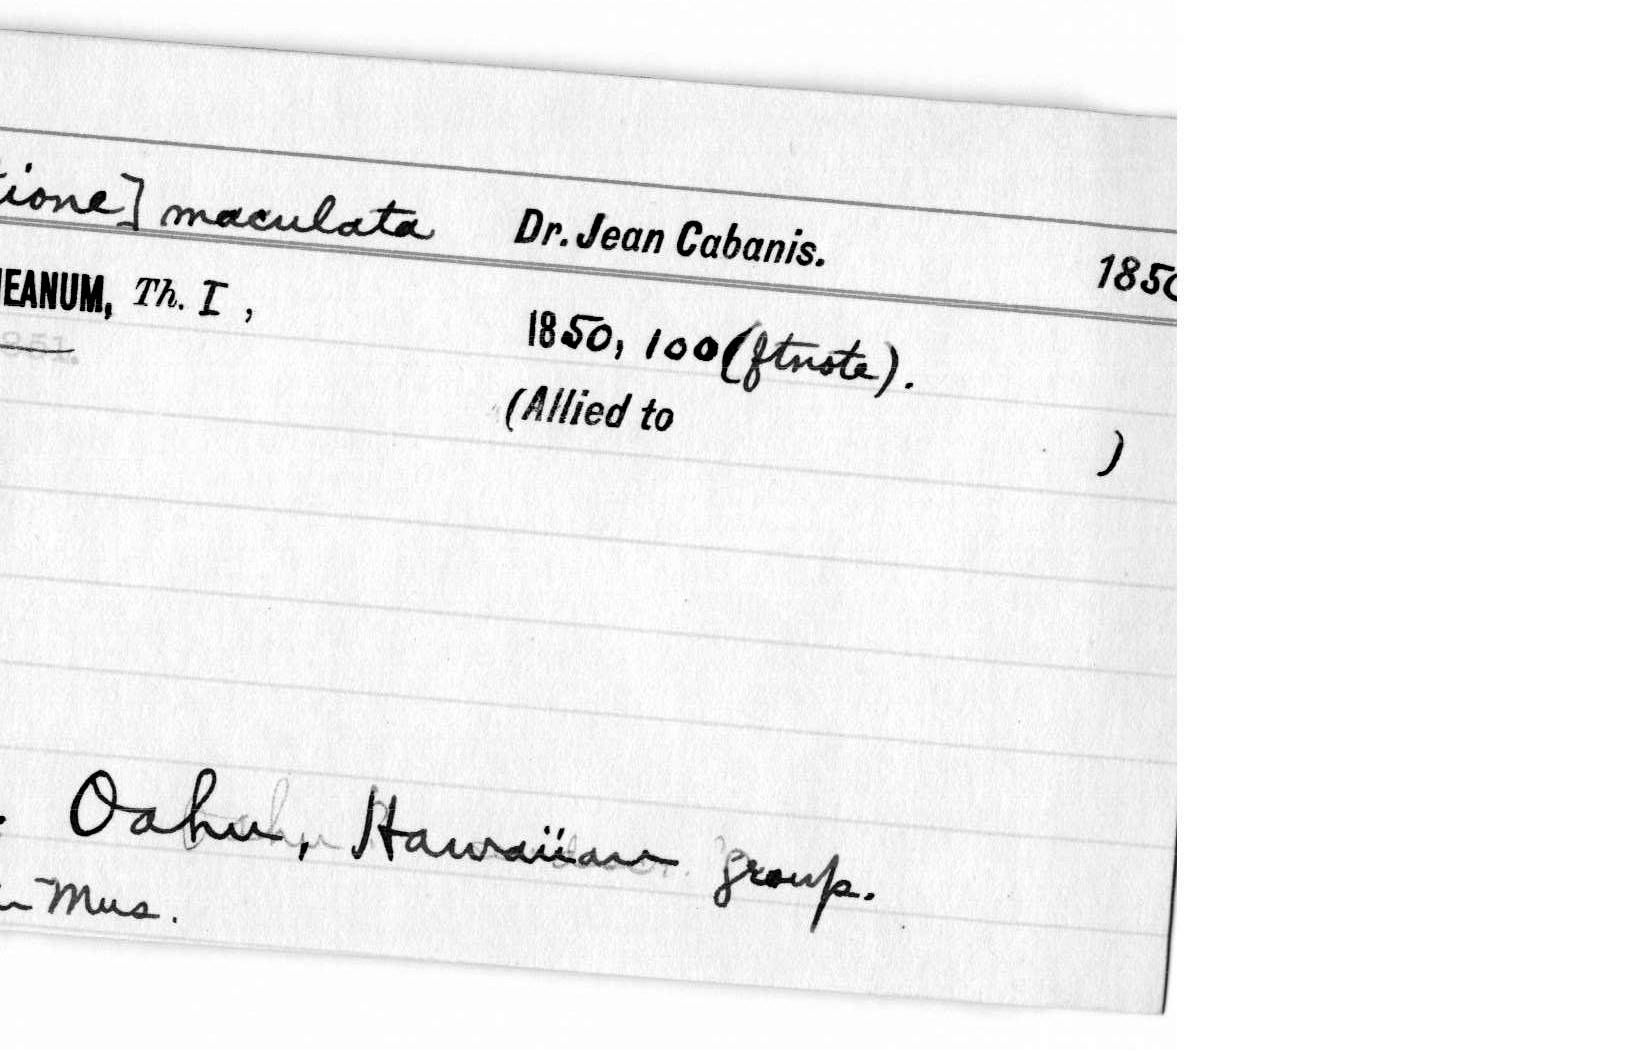 tione] maculata Dr. Jean Cabanis. 1850
EANUM, Th. I, 1850, 100 (ftnote).
851.
(Allied to )
Oahu, Hawaiian group.
Mus.